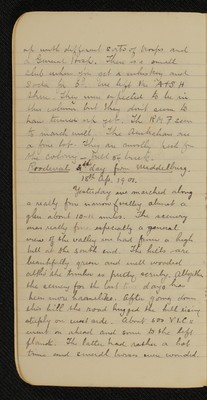 up with different sorts of troops and
a Bennet look. There is a small
club where you get a whiskey and
Soda for 6d. We lost the A & S H
there. They were expected to be in
this column but they don't seem to
have turned up yet. The R.H.F seem
to march well. The Australian are
a fine lot. They are mostly
the colony — full of buck.
Roodeval 4th day from Middelburg.
18th Ap. 1901.
Yesterday we marched along
a really fine narrow valley almost a
glen about 10 miles. The scenery
was really fine especially a general
view of the valley we had from a high
hill at the south end. The hills are
beautifully green and well wooded
altho' the timber is pretty scrubby. Altogether
the scenery for the last two days has
been more homelike. After going down
this hill the road hugged the hill rising
steeply on west side. About 500 V.I.Cs
went on ahead and some to the left
flank. The latter had rather a hot
time and several horses were wounded